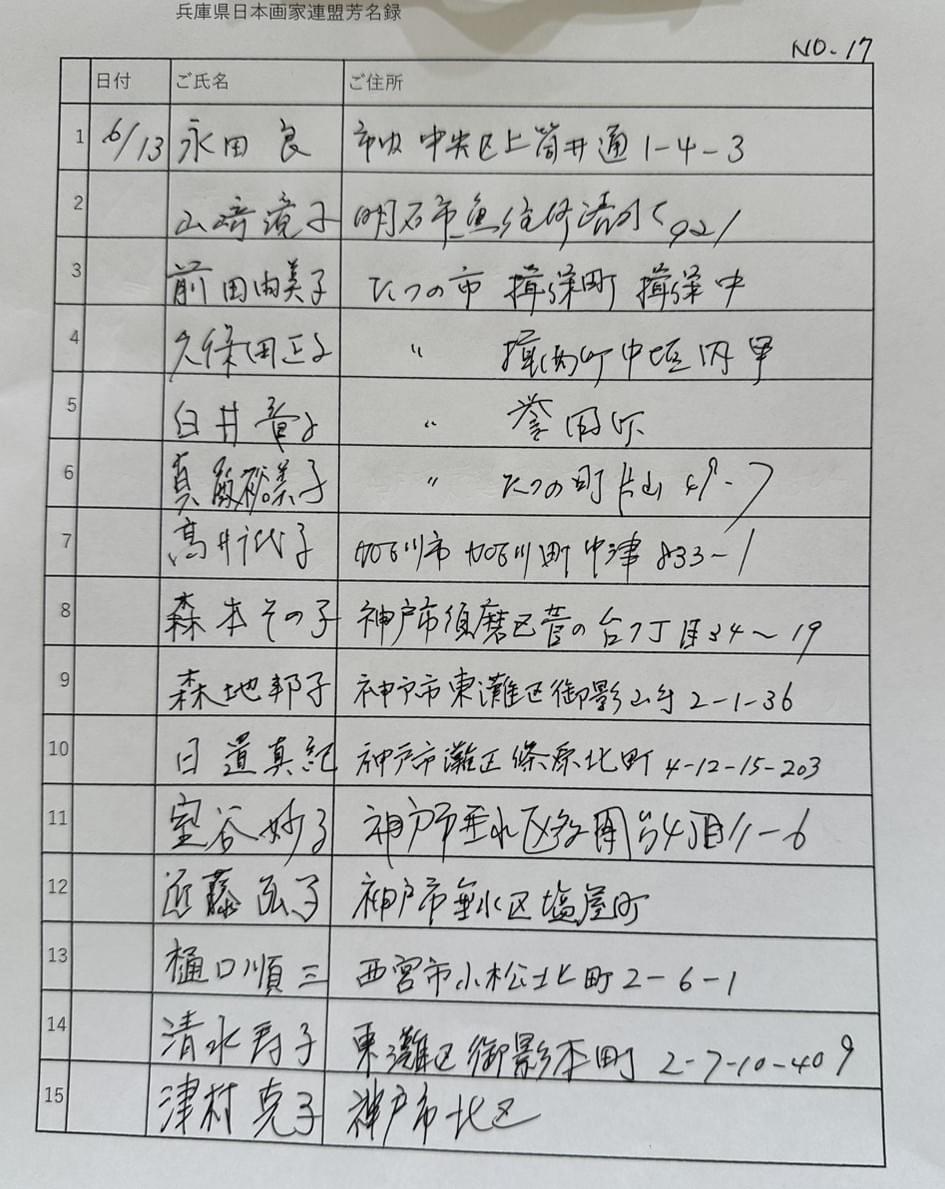 兵庫県日本画家連盟芳名録
NO.17
日付 ご氏名 ご住所
1 6/13 永田 良 市内 中央区上筒井通 1-4-3
2 山﨑 子 明石市魚住町清水 921
3 前田由美子 たつの市 揖保町 揖保中
4 久保田正子 〃 揖西町中垣内甲
5 白井章子 〃 誉田町
6 真殿裕美子 〃 たつの町片山 49-7
7 高井 子 加古川市 加古川町 中津 833-1
8 森本その子 神戸市須磨区菅の台7丁目34〜19
9 森地邦子 神戸市東灘区御影山手 2-1-36
10 日置真紀 神戸市灘区篠原北町 4-12-15-203
11 室谷妙子 神戸市垂水区 台4丁目11-6
12 近藤弘子 神戸市垂水区塩屋町
13 樋口順三 西宮市小松北町 2-6-1
14 清水寿子 東灘区御影本町 2-7-10-409
15 津村克子 神戸市北区